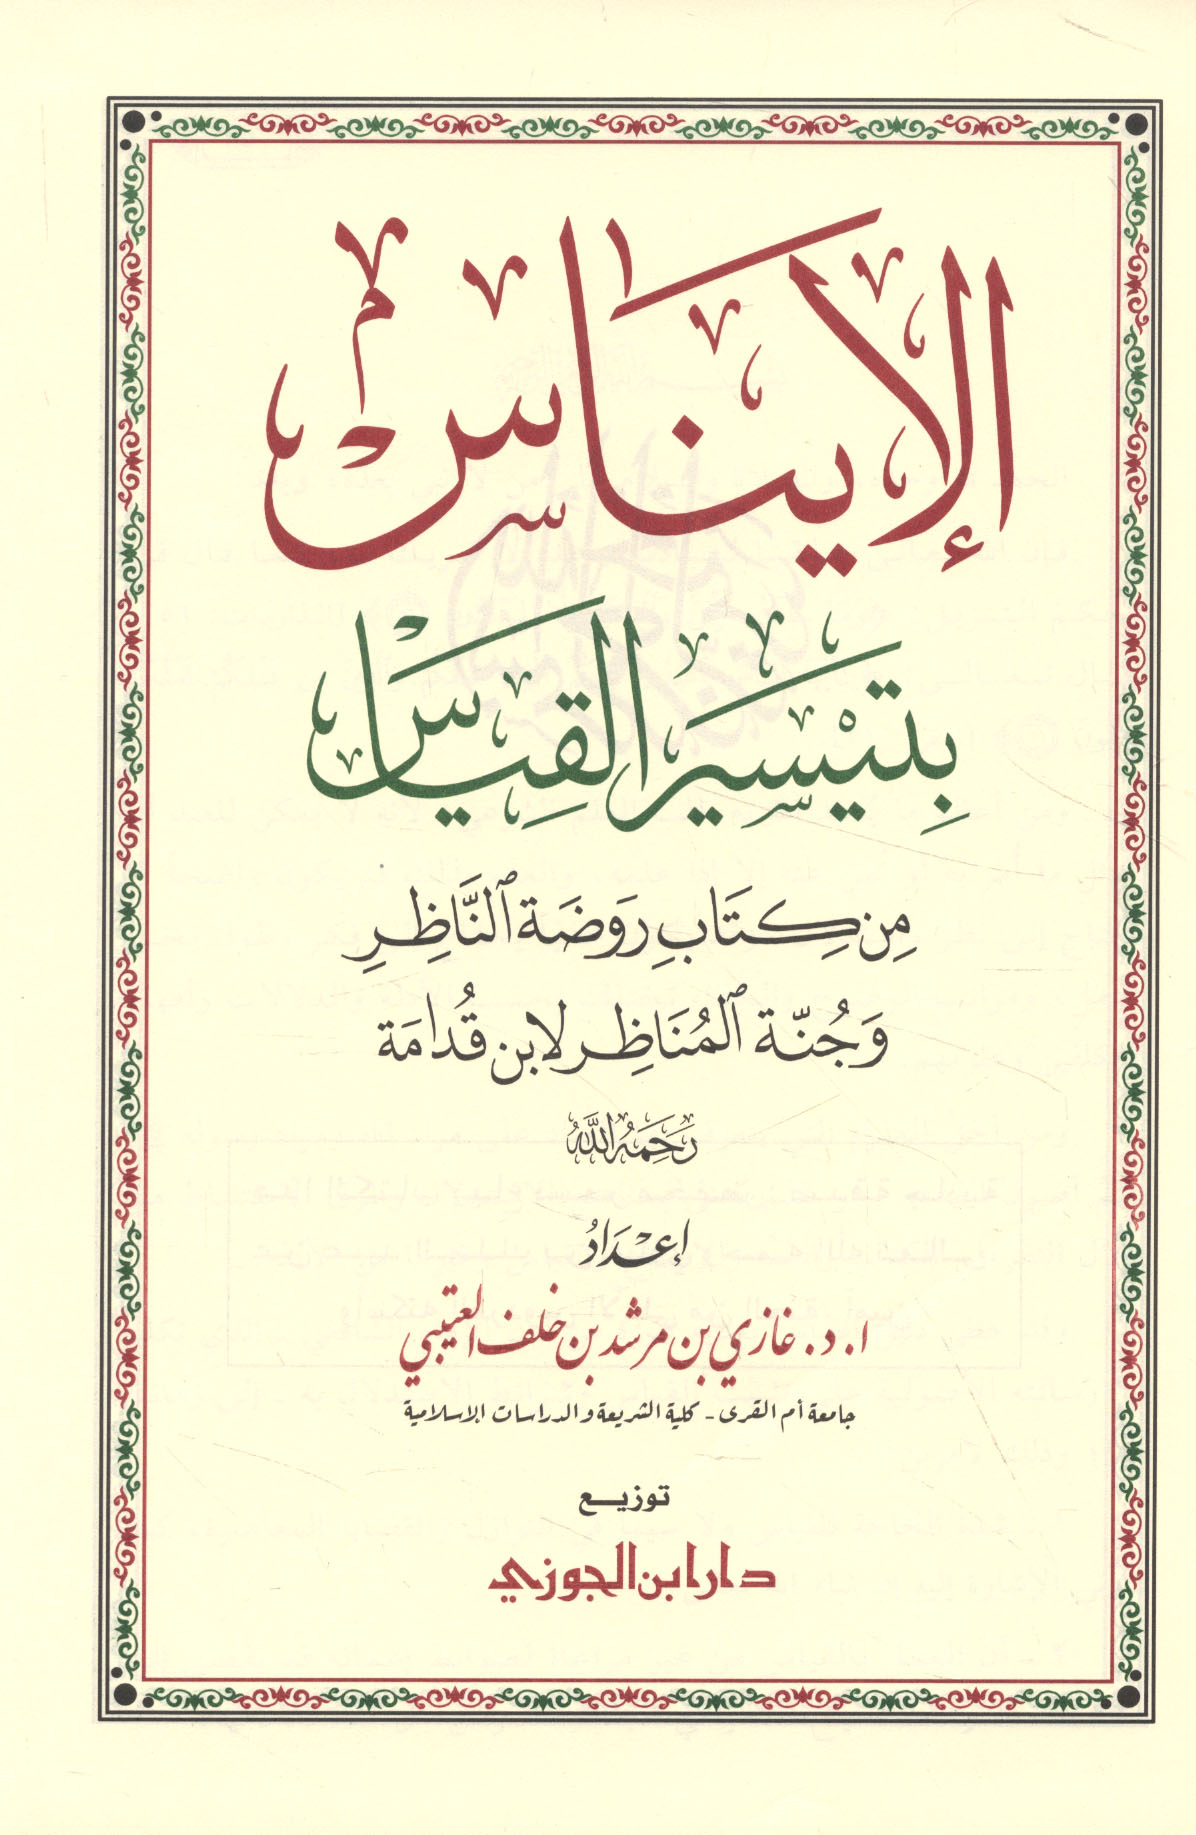 الإيناس
بتيسير القياس
مِن كِتَابِ رَوضَة ٱلنَّاظِرِ
وَجُنّة ٱلمُنَاظِر لابن قُدامَة
رَحِمَهُ اللَّهُ
إعْدَادُ
ا. د. غازي بن مرشد بن خلف العتيبي
جامعة أم القرى - كلية الشريعة والدراسات الإسلامية
توزيع
دار ابن الجوزي